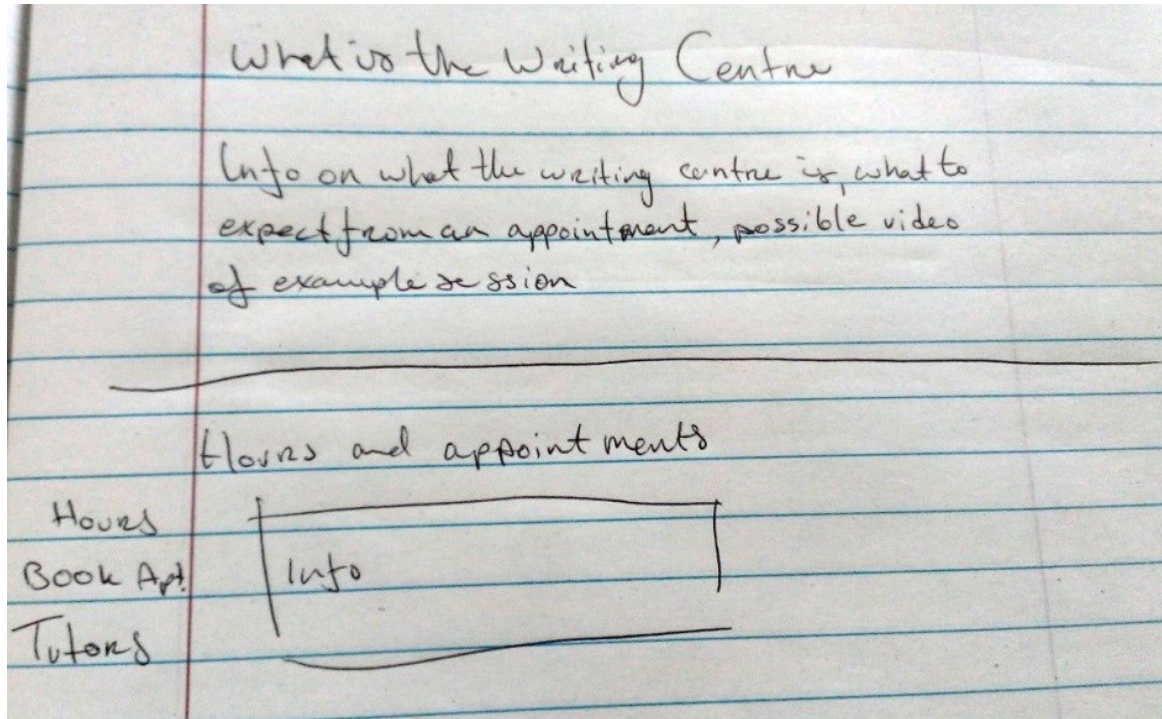 What is the Writing Centre
Info on what the writing centre is, what to
expect from an appointment, possible video
of example session
Hours and appointments
Hours
Book Apt.
Info
Tutors